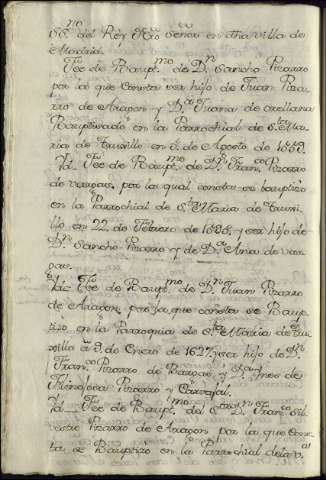 SS.mo del Rey Nro Señor en dha villa de
Madrid.
Fee de Baupt.mo de D.n Sancho Pizarro
por la que Consta ser hijo de Juan Piza
rro de Aragon y D.a Juana de orellana
Bauptizado en la Parrochial de S.ta Ma
ria de truxillo en 5. de Agosto de
Id. Fee de Baupt.mo de D.n Fran.co Pizarro
de vargas, por la qual consta se bauptizo
en la Parrochial de S.ta Maria de truxi
llo en 22. de Febrero de y ser hijo de
D.n Sancho Pizarro y de D.a Ana de var
gas.
Id. Fee de Baupt.mo de D.n Juan Pizarro
de Aragon, por la que consta se Baup
tizo en la Parroquia de S.ta Maria de tru
xillo à 9. de Enero de 1627. y ser hijo de D.n
Fran.co Pizarro de Bargas, y D.a Ynes de
Hinojosa Pizarro y Carvajal.
Id. Fee de Baupt.mo del D.n Fran.co Sil
vestre Pizarro de Aragon por la que Cons
ta se Bauptizo en la Parrochial de la v.a